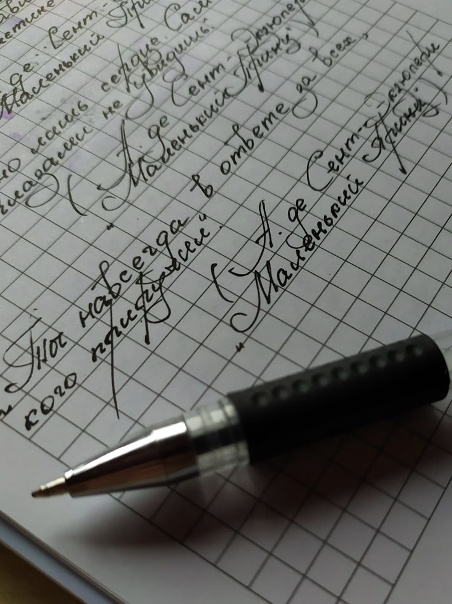 де Сент-
Маленький
лишь сердце Сам
глазами не увидишь"
( А. де Сент-Экзюпери
"Маленький Принц")
"Ты навсегда в ответе за всех,
кого приручил."
( А. де Сент-Экзюпери
"Маленький Принц")